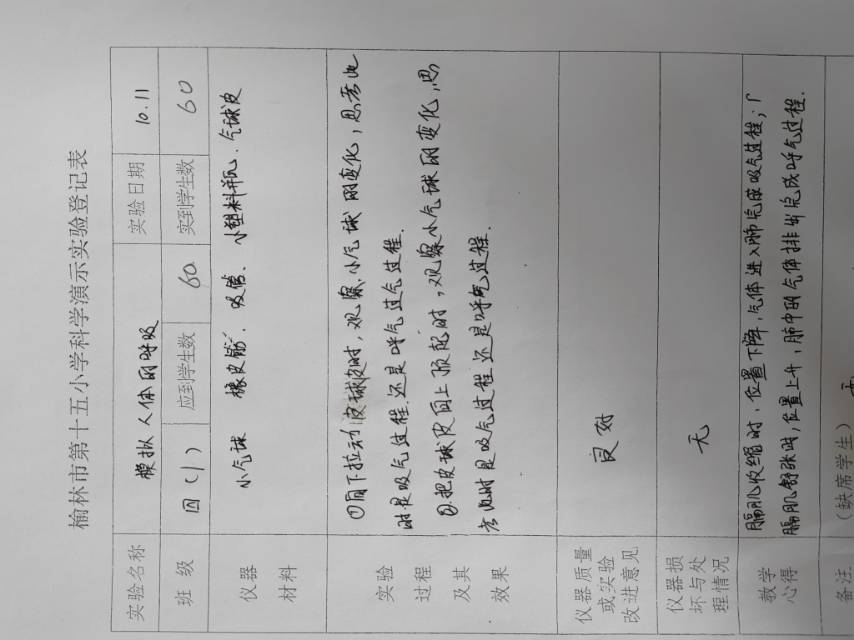 榆林市第十五小学科学演示实验登记表
实验名称 模拟人体的呼吸 实验日期 10.11
班级 四(1) 应到学生数 60 实到学生数 60
仪器
材料
小气球 橡皮筋、吸管、小塑料瓶、气球皮
实验
过程
及其
效果
①向下拉动皮球皮时，观察小气球的变化，思考此
时是吸气过程还是呼气过气过程.
②把皮球皮向上顶起时，观察小气球的变化，思
考此时是吸气过程还是呼气过程.
仪器质量
或实验
改进意见
良好
仪器损
坏与处
理情况
无
教学
心得
膈肌收缩时，位置下降，气体进入肺完成吸气过程；
膈肌舒张时，位置上升，肺中的气体排出完成呼气过程.
备注
（缺席学生）